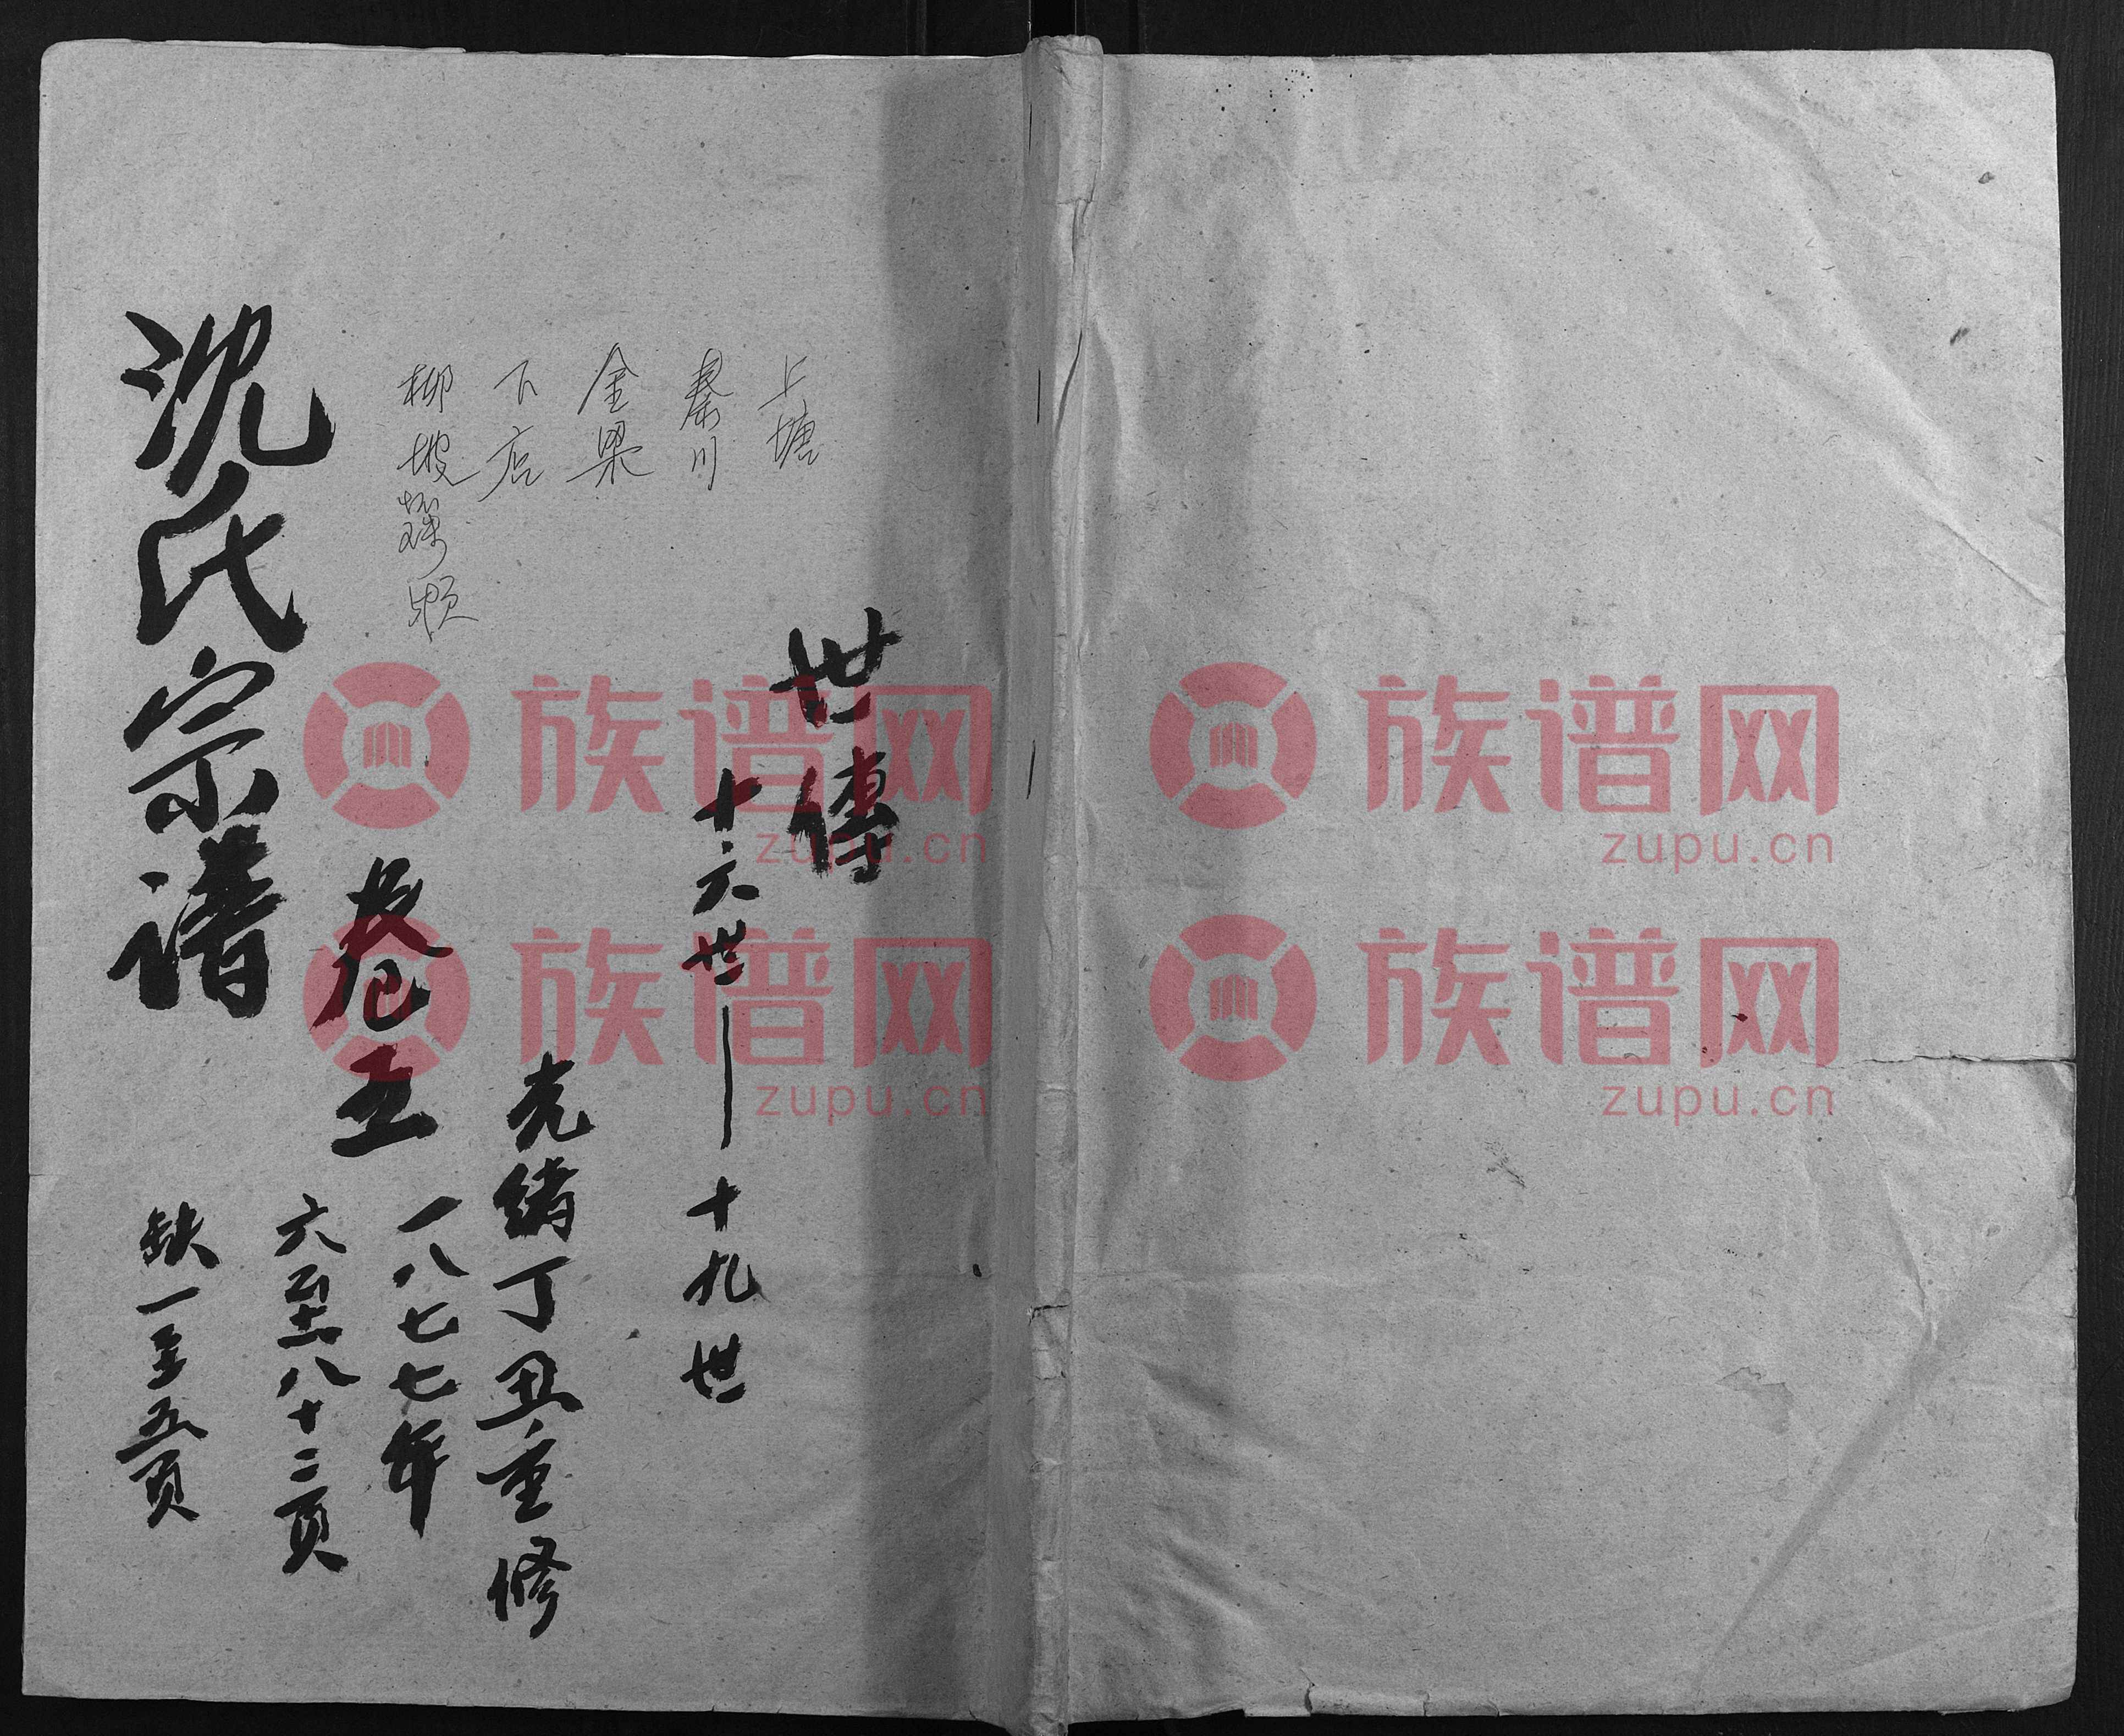 世傳
十六世—十九世
上塘
秦川
金梁
下店
柳坡
光绪丁丑重修
一八七七年
卷五
六至八十二页
沈氏宗谱
缺一至五页
族谱网
zupu.cn
族谱网
zupu.cn
族谱网
zupu.cn
族谱网
zupu.cn